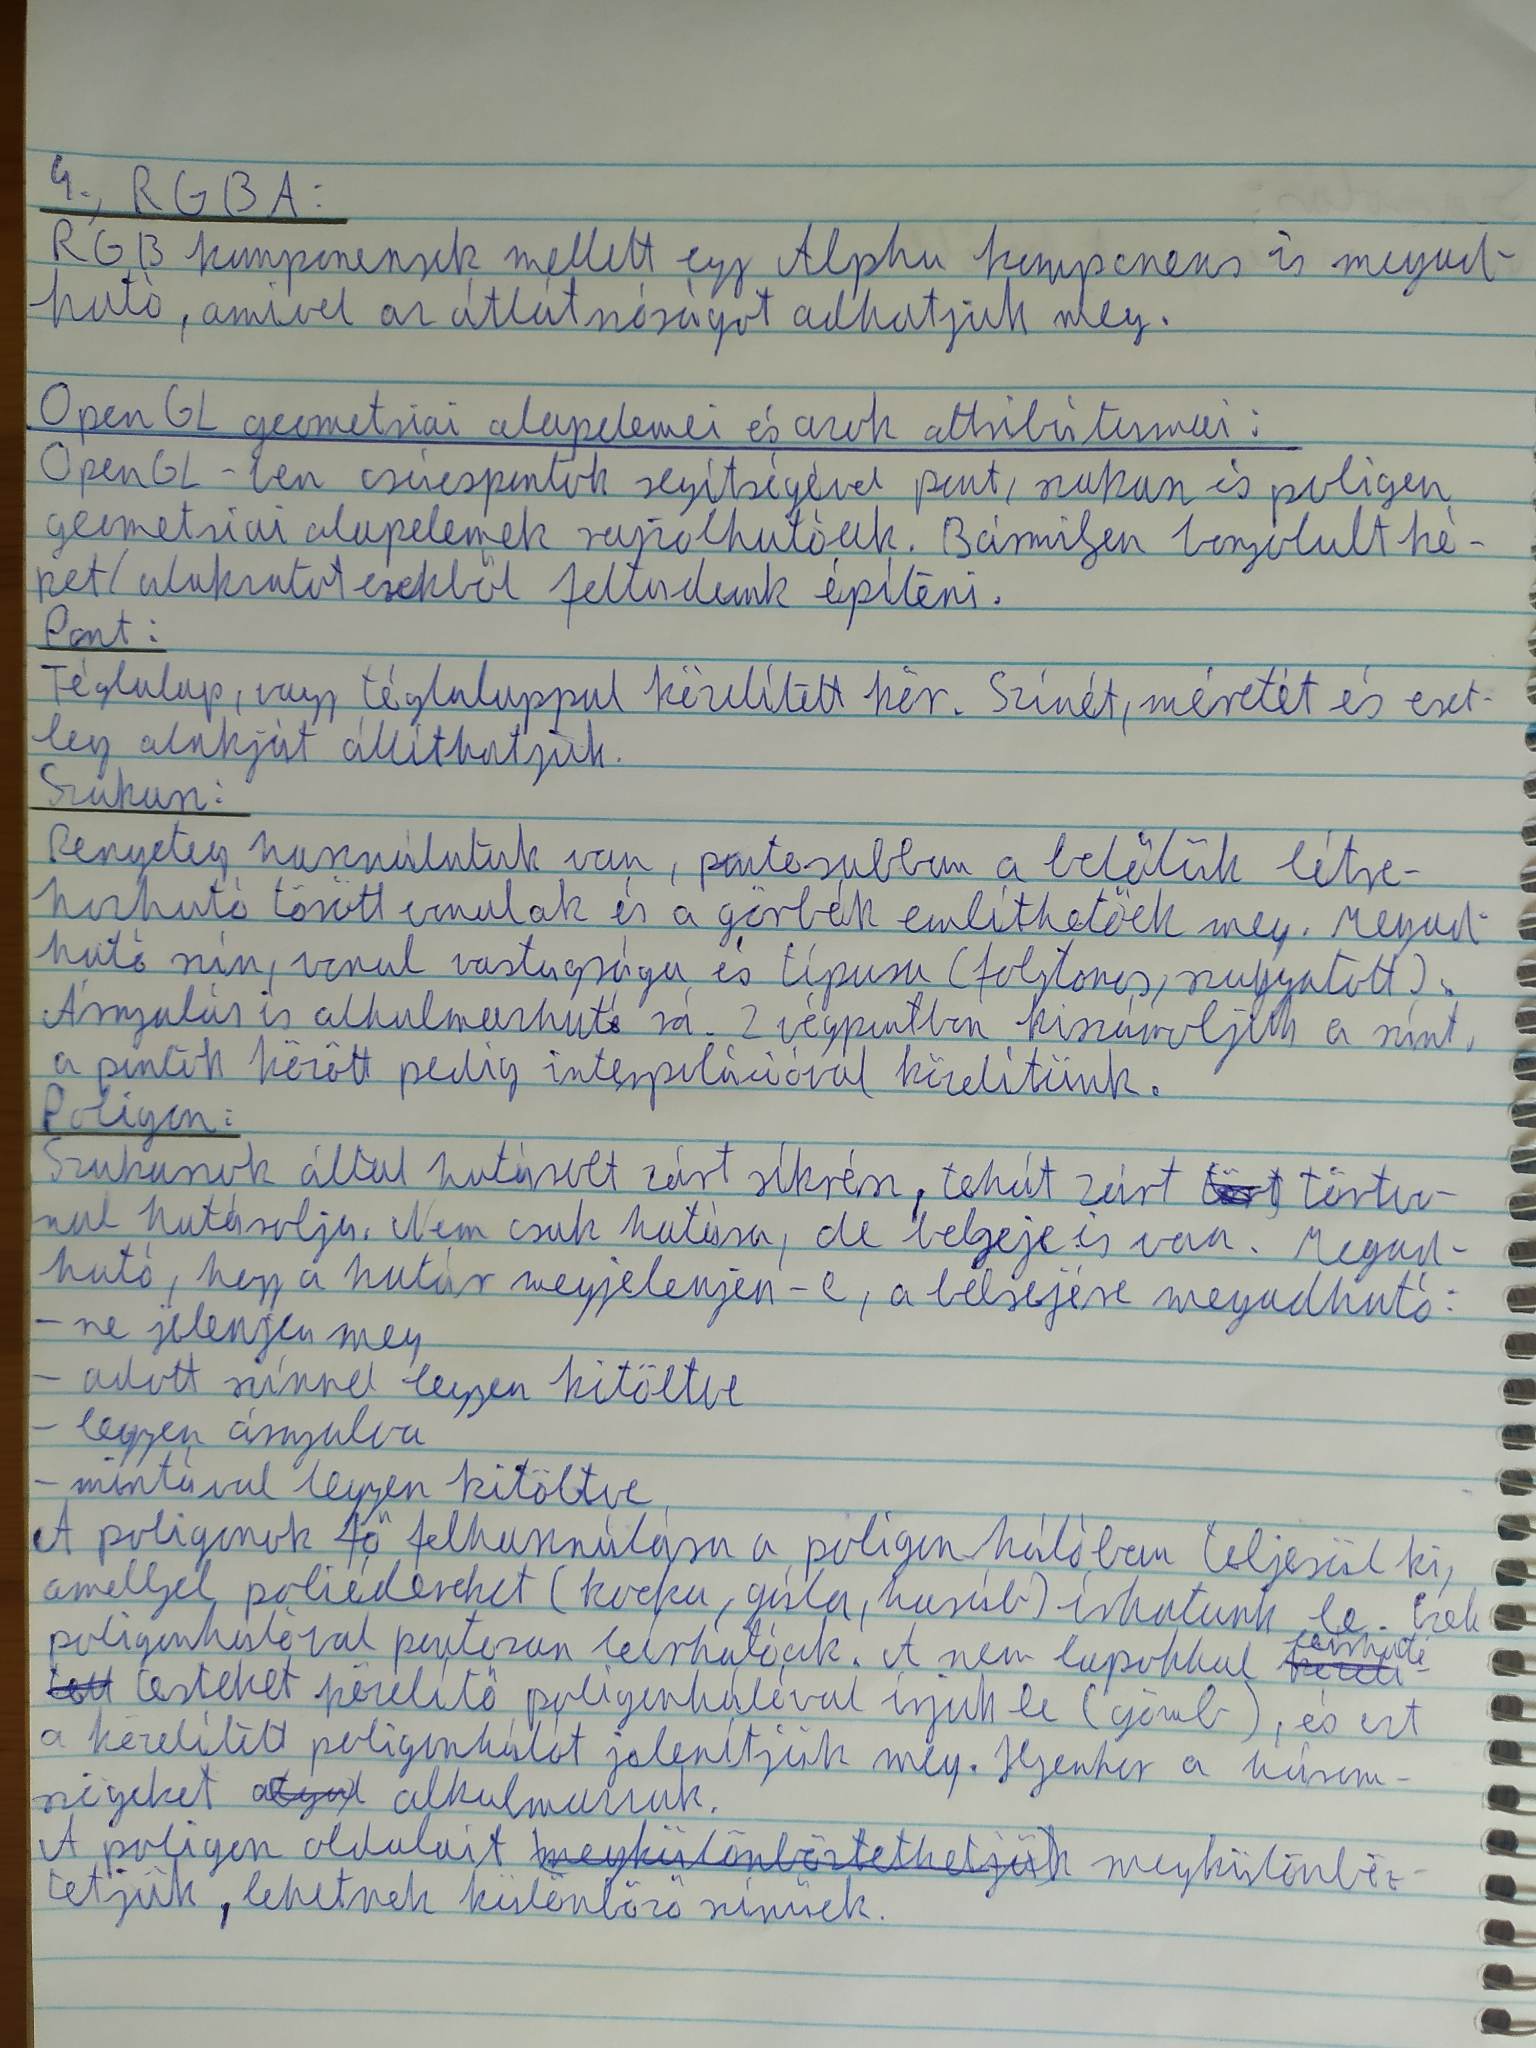 4., RGBA:
RGB komponensek mellett egy Alpha komponens is megad-
ható, amivel az átlátszóságot adhatjuk meg.
OpenGL geometriai alapelemei és azok attribútumai:
OpenGL-ben csúcspontok segítségével pont, szakasz és poligon
geometriai alapelemek rajzolhatóak. Bármilyen bonyolult ké-
pet/alakzatot ezekből feltudunk építeni.
Pont:
Téglalap, vagy téglalappal közelített kör. Színét, méretét és eset-
leg alakját állíthatjuk.
Szakasz:
Rengeteg használatuk van, pontosabban a belőlük létre-
hozható törött vonalak és a görbék említhetőek meg. Megad-
ható szín, vonal vastagsága és típusa (folytonos, szaggatott).
Árnyalás is alkalmazható rá. 2 végpontban kiszámoljuk a színt,
a pontok között pedig interpolációval közelítünk.
Poligon:
Szakaszok által határolt zárt síkrész, tehát zárt törtvo-
nal határolja. Nem csak határa, de belseje is van. Megad-
ható, hogy a határ megjelenjen-e, a belsejére megadható:
- ne jelenjen meg
- adott színnel legyen kitöltve
- legyen árnyalva
- mintával legyen kitöltve
A poligonok fő felhasználása a poligon hálóban teljesül ki,
amellyel poliédereket (kocka, gúla, hasáb) írhatunk le. Ezek
poligonhálóval pontosan leírhatóak. A nem lapokkal leírható
testeket közelítő poligonhálóval írjuk le (gömb), és ezt
a közelített poligonhálót jelenítjük meg. Ilyenkor a három-
szögeket alkalmazzuk.
A poligon oldalait megkülönböz-
tetjük, lehetnek különböző színűek.